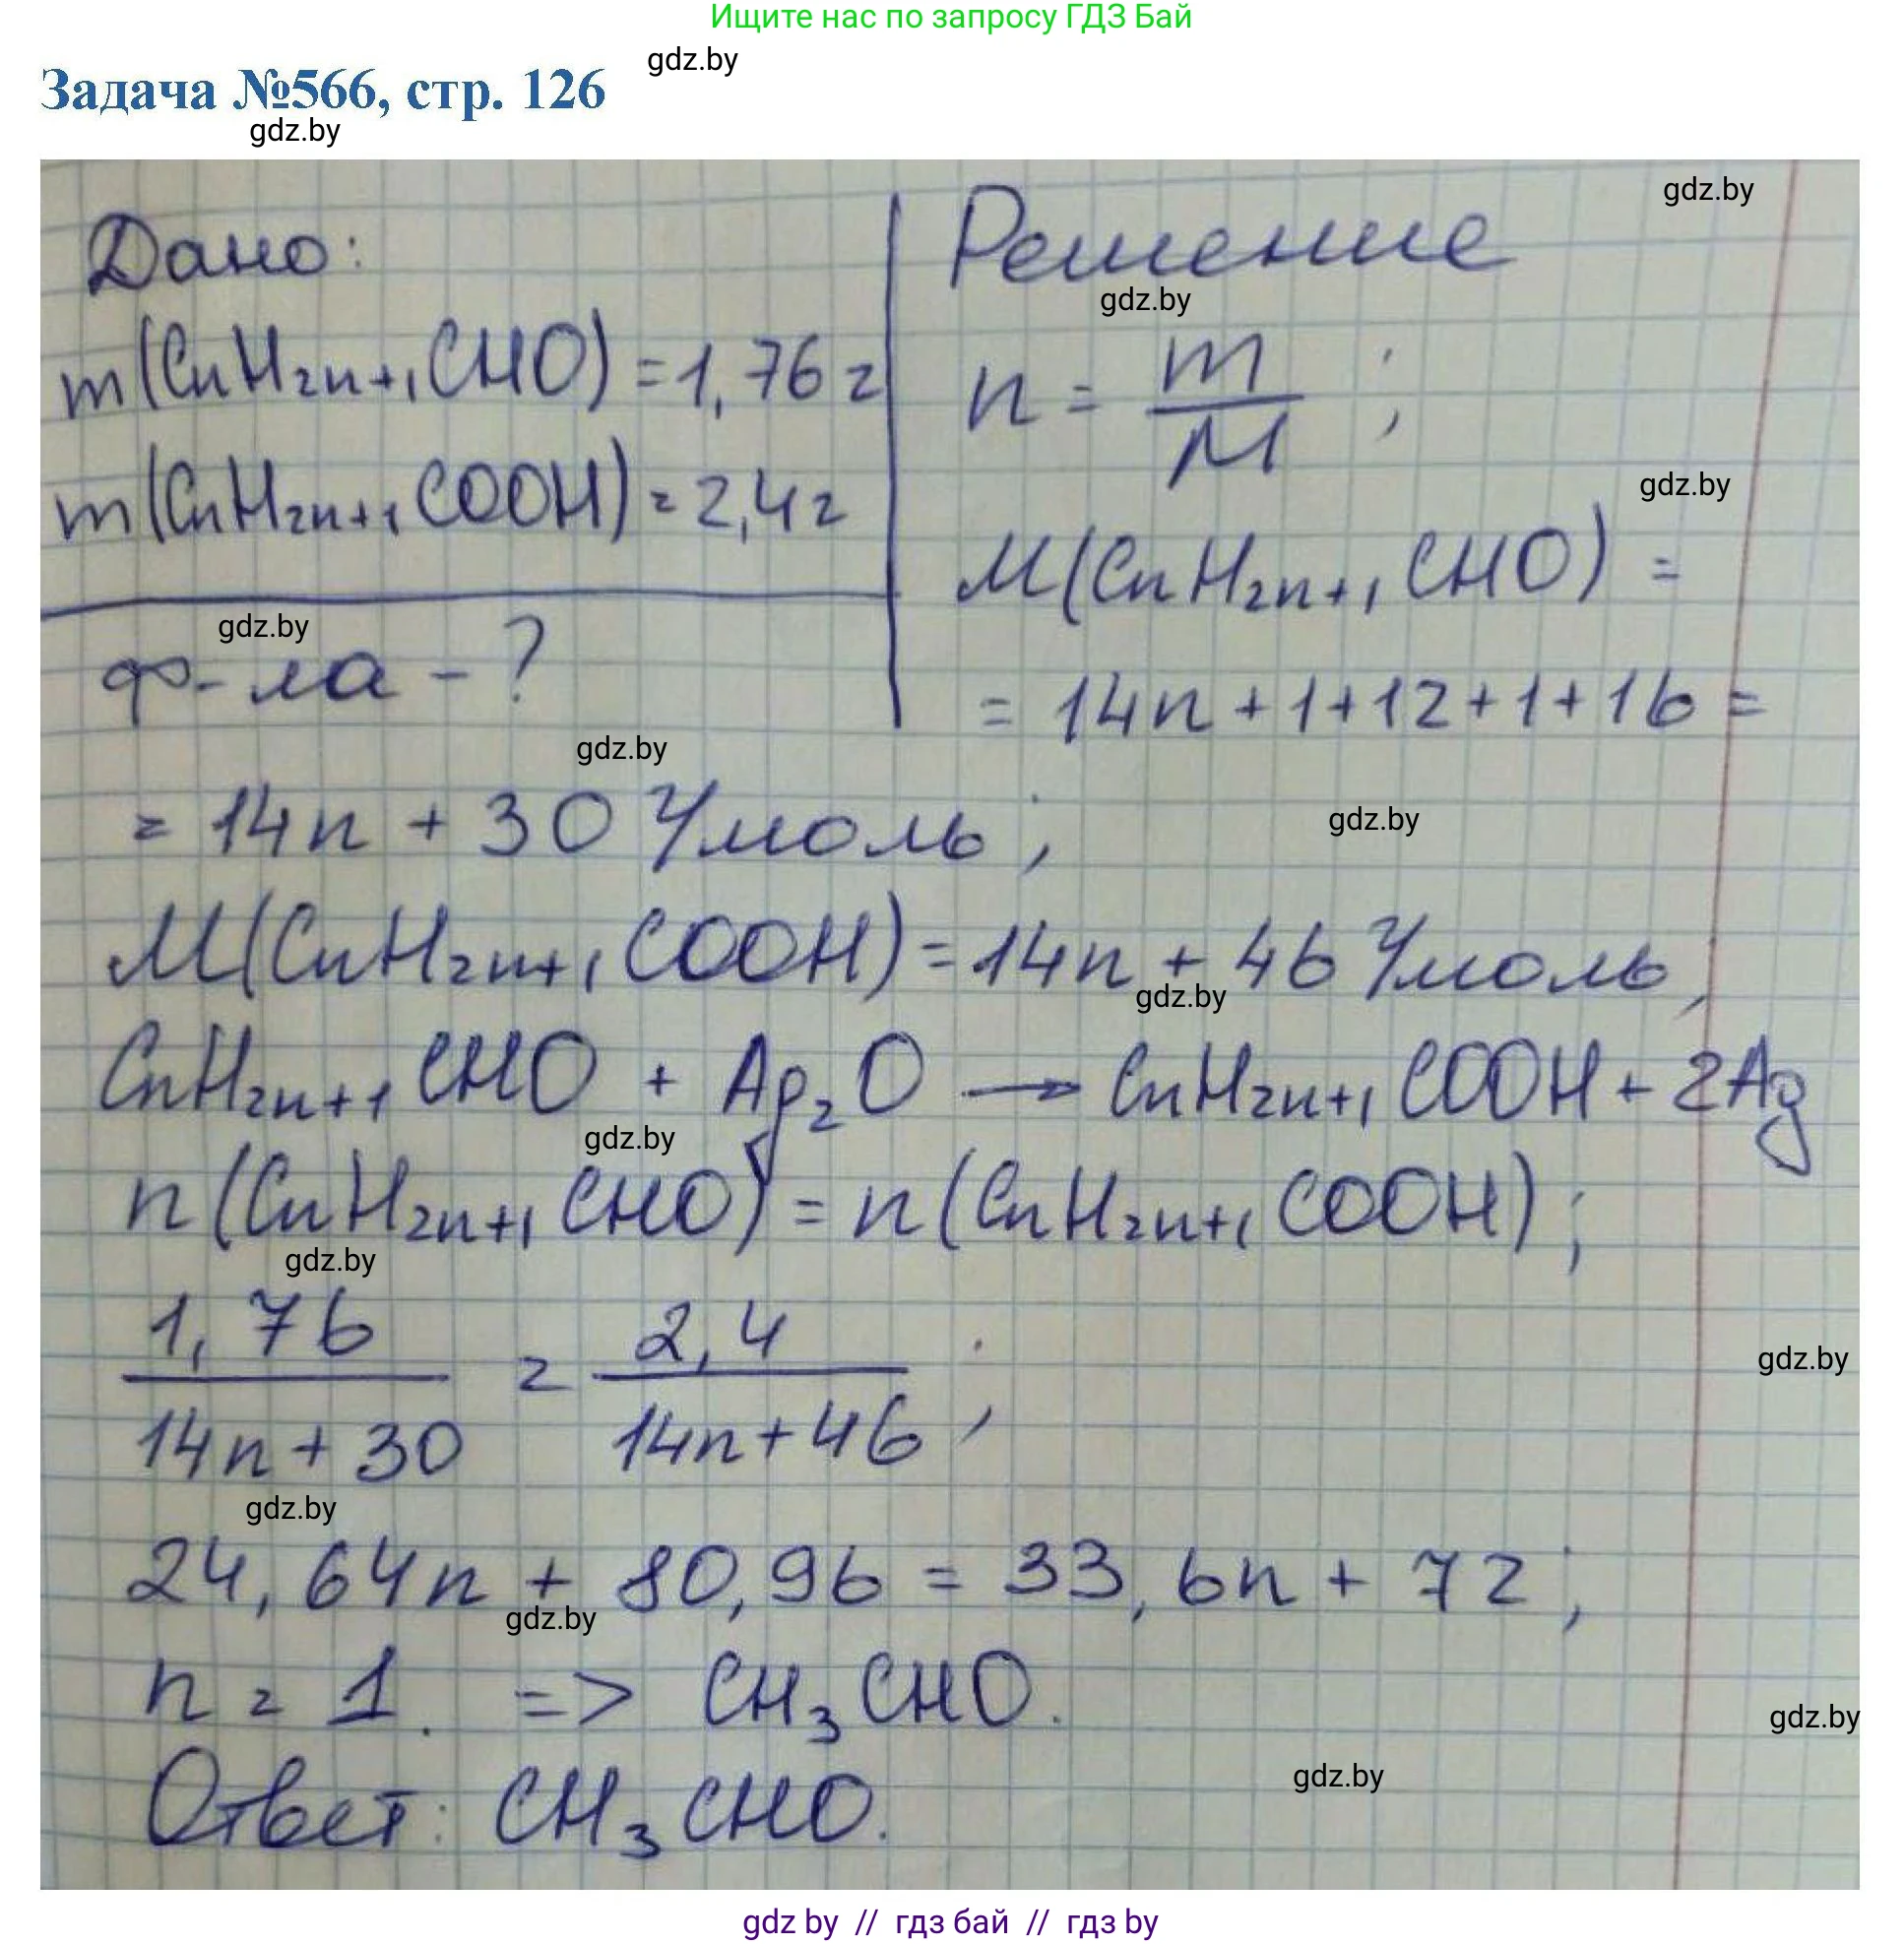 Ищите нас по запросу ГДЗ Бай
gdz.by
Задача №566, стр. 126
gdz.by
gdz.by
Дано:
Решение
gdz.by
m(CnH2n+1CHO) = 1,76 г
n = m/M ;
m(CnH2n+1COOH) = 2,4 г
gdz.by
M(CnH2n+1CHO) =
gdz.by
ф-ла - ?
= 14n + 1 + 12 + 1 + 16 =
gdz.by
= 14n + 30 г/моль ;
gdz.by
M(CnH2n+1COOH) = 14n + 46 г/моль ;
gdz.by
CnH2n+1CHO + Ag2O → CnH2n+1COOH + 2Ag
gdz.by
n(CnH2n+1CHO) = n(CnH2n+1COOH) ;
gdz.by
1,76/14n + 30 = 2,4/14n + 46 ;
gdz.by
gdz.by
24,64n + 80,96 = 33,6n + 72 ;
gdz.by
n = 1. => CH3CHO.
gdz.by
gdz.by
Ответ: CH3CHO.
gdz by // гдз бай // гдз by